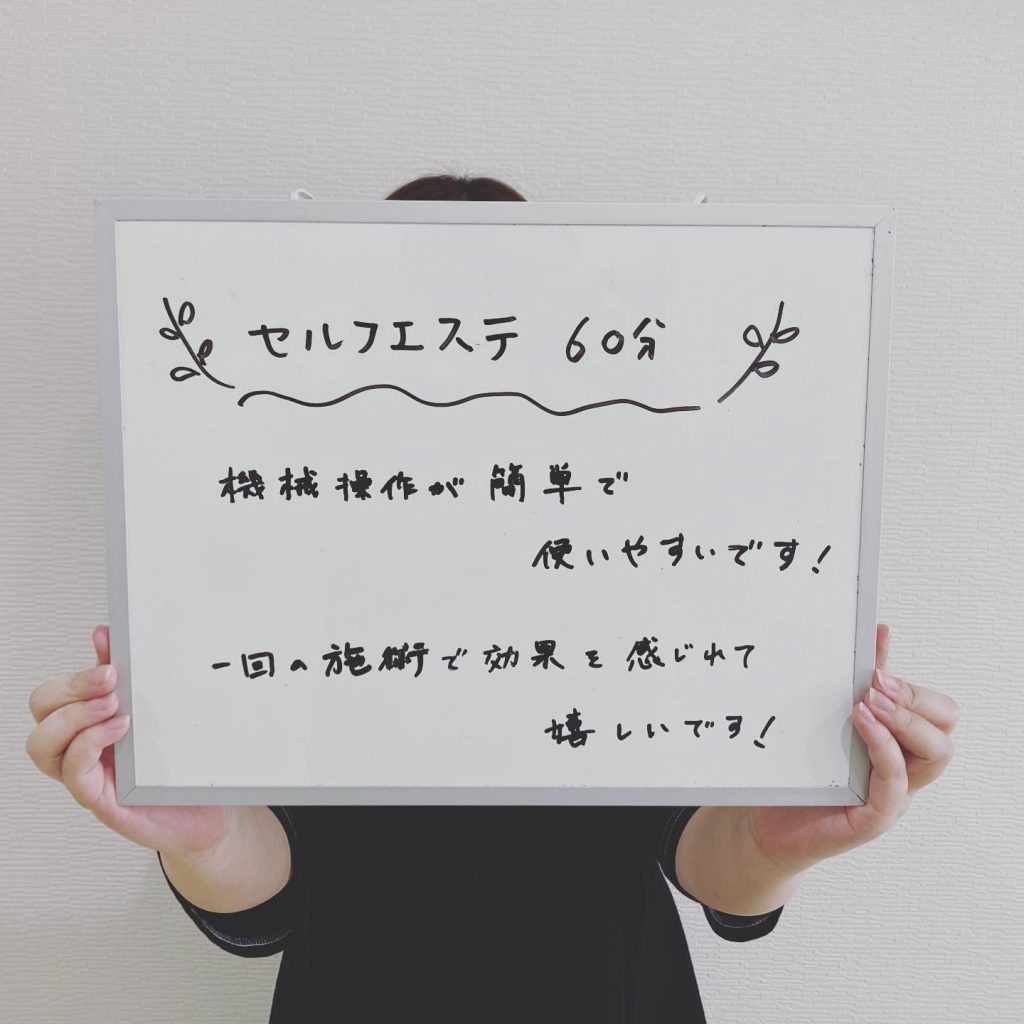 セルフエステ 60分
機械操作が簡単で
使いやすいです!
一回の施術で効果を感じれて
嬉しいです!